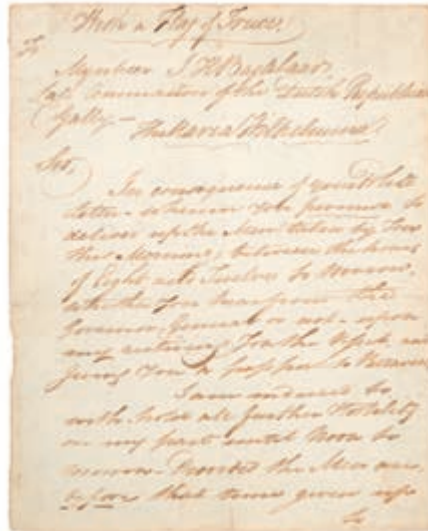 With a Flag of Truce.
To
Mynheer
late Commander of the Dutch Republican
Galley
The Maria Wilhelmina
Sir,
In consequence of your
letter wherein you promise to
deliver up the Men taken by
this Morning, between the hours
of Eight and Twelve to Morrow
whether you hear from the
Governor General or not - upon
my
giving You a Passport to
I am induced to
with hold all further Hostility
on my part until Noon to
morrow - Provided the Men are
before that time given up